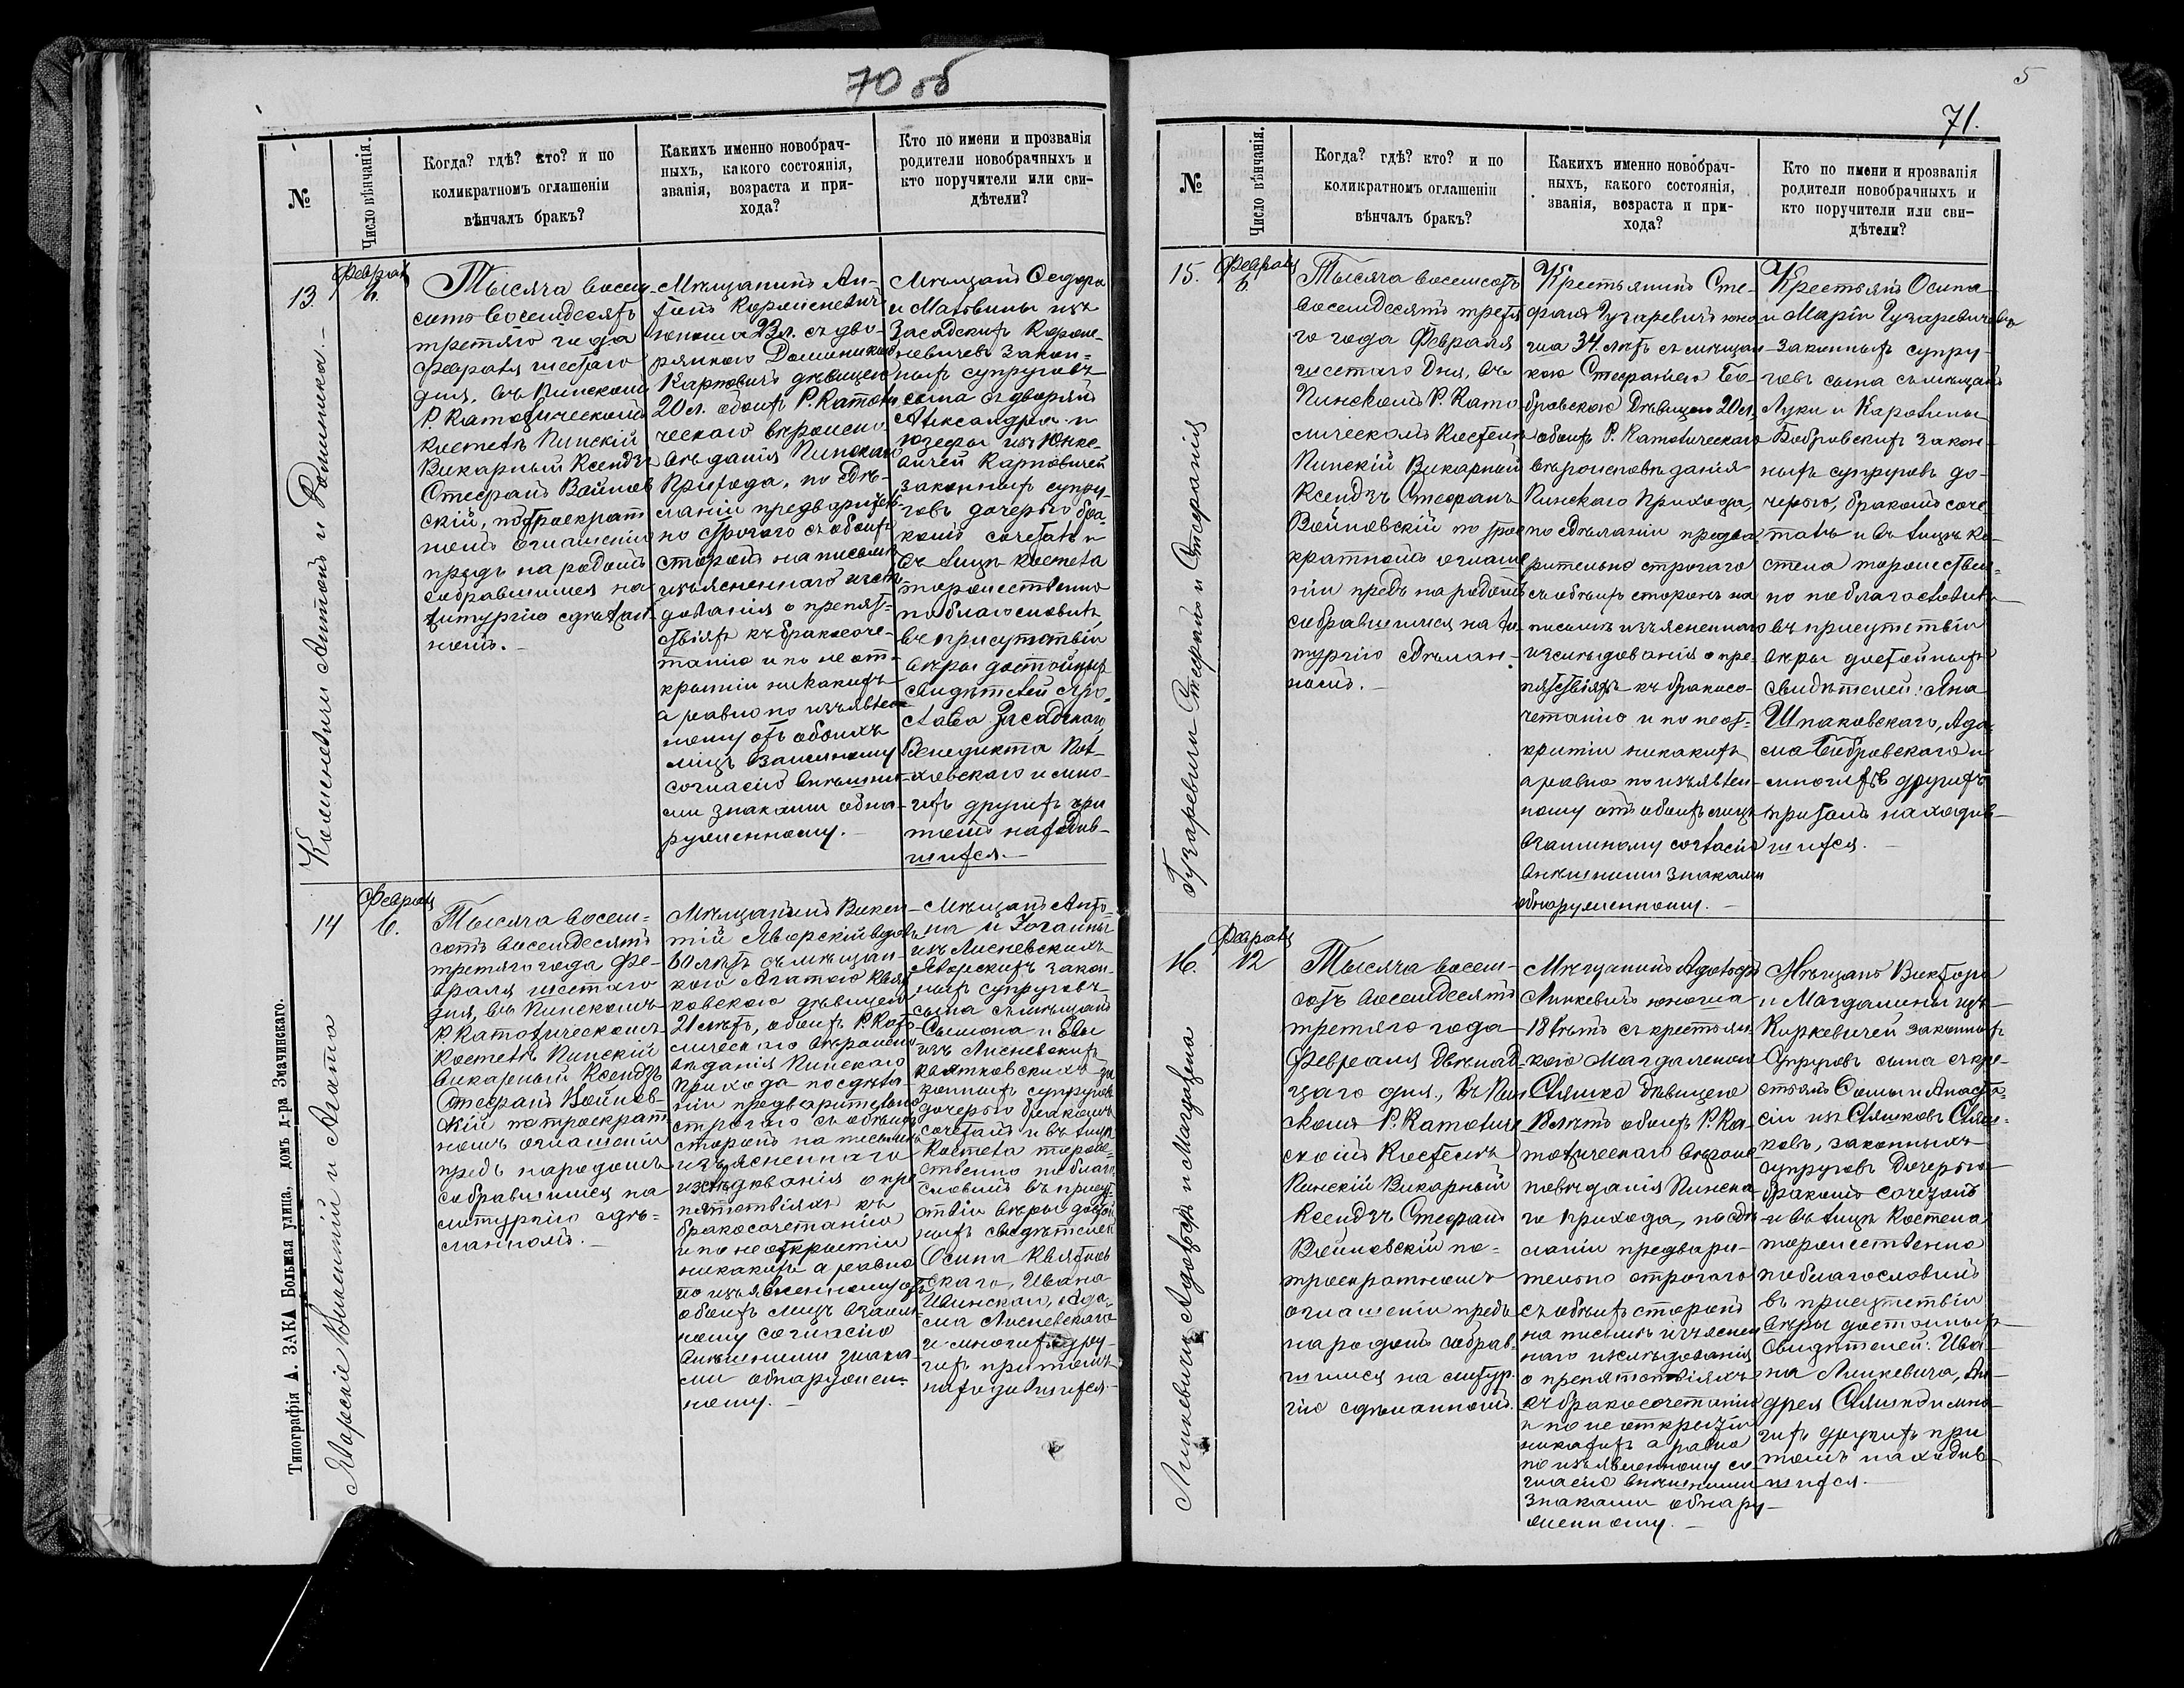 70 об
№
Число вѣнчанія.
Когда? гдѣ? кто? и по
коликратномъ оглашеніи
вѣнчалъ бракъ?
Какихъ именно новобрач-
ныхъ, какого состоянія,
званія, возраста и при-
хода?
Кто по имени и прозванія
родители новобрачныхъ и
кто поручители или сви-
дѣтели?
13.
Февраля
6.
Тысяча восем-
сотъ восемдесятъ
третяго года
Февраля шестаго
дня, въ Пинскомъ
Р. Католическомъ
Костелѣ Пинскій
Викарный Ксендзъ
Стефанъ Войнов
скій, по троекрат
номъ оглашеніи
предъ народомъ
собравшимся на
литургію сдѣлан-
номъ.
Мѣщанинъ Ан-
тонъ
юноша 23 л. съ дво-
рянкою Доминикою
Карповичъ дѣвицею
20 л. обоихъ Р. Католи
ческаго вѣроиспо
вѣданія Пинскаго
Прихода, по сдѣ-
ланіи предваритель-
но строгаго съ обоихъ
сторонъ на письмѣ
изъясненнаго изслѣ-
дованія о препят-
ствіяхъ къ бракосоче-
танію и по не от-
крытіи никакихъ
а равно по изъявлен
ному отъ обоихъ
лицъ взаимному
согласію внѣшни-
ми знаками обна-
руженному.
Мѣщанъ Федора
и Мальвины изъ
Засадскихъ
закон-
ныхъ супруговъ
сына съ дворянъ
Александра и
Юзефы изъ Юнке-
вичей Карповичей
законныхъ супру-
говъ дочерью бра-
комъ сочеталъ и
въ лицѣ костела
торжественно
поблагословилъ,
въ присутствіи
вѣры достойныхъ
свидѣтелей Яро-
слава Засадскаго
Венедикта
и мно-
гихъ другихъ при
томъ находив-
шихся.
14
Февраля
6.
Тысяча восем-
сотъ восемдесятъ
третяго года Фе-
враля шестаго
дня, въ Пинскомъ
Р. Католическомъ
Костелѣ Пинскій
викарный Ксендзъ
Стефанъ Войнов-
скій по троекрат
номъ оглашеніи
предъ народомъ
собравшимся на
литургію сдѣ-
ланномъ.
Мѣщанинъ Викен-
тій Яворскій вдовъ
60 лѣтъ съ мѣщан-
кою Агатою Квят
ковскою дѣвицею
21 лѣтъ, обоихъ Р. Като
лическаго вѣроиспо
вѣданія Пинскаго
прихода по сдѣла-
ніи предварительно
строгаго съ обѣихъ
сторонъ на письмѣ
изъясненнаго
изслѣдованія о пре
пятствіяхъ къ
бракосочетанію
и по не открытіи
никакихъ а равно
по изъявленному отъ
обоихъ лицъ взаим-
ному согласію
внѣшними знака-
ми обнаружен-
ному.
Мѣщанъ Анто-
на и
изъ Лисневскихъ
Яворскихъ закон-
ныхъ супруговъ
сына съ мѣщанъ
Сымона и Евы
изъ Лисневскихъ
Квятковскихъ за
конныхъ супруговъ
дочерью бракомъ
сочеталъ и въ лицѣ
Костела торже-
ственно поблаго
словилъ въ присут
ствіи вѣры достой
ныхъ свидѣтелей
Осипа Квятков
скаго, Ивана
Ада-
ма Лисневскаго
и многихъ дру-
гихъ притомъ
находившихся.
Коменевичи Антонъ и Доминика.
Яворскіе Викентій и Агата
Типографія А. ЗАКА Большая улица, домъ д-ра Значинскаго.
5
71.
№
Число вѣнчанія.
Когда? гдѣ? кто? и по
коликратномъ оглашеніи
вѣнчалъ бракъ?
Какихъ именно новобрач-
ныхъ, какого состоянія,
званія, возраста и при-
хода?
Кто по имени и прозванія
родители новобрачныхъ и
кто поручители или сви-
дѣтели?
15.
Февраля
6
Тысяча восемсотъ
восемдесятъ третя
го года Февраля
шестаго дня, въ
Пинскомъ Р. Като
лическомъ Костелѣ
Пинскій Викарный
Ксендзъ Стефанъ
Войновскій по трое
кратномъ оглаше
ніи предъ народомъ
собравшимся на ли-
тургію сдѣлан-
номъ.
Крестьянинъ Сте-
фанъ Гузаревичъ юно
ша 34 лѣтъ съ мѣщан
кою Стефаніею Бо-
бровскою дѣвицею 20 л.
обоихъ Р. Католическаго
вѣроисповѣданія
Пинскаго Прихода,
по сдѣланіи предва
рительно строгаго
съ обѣихъ сторонъ на
письмѣ изъясненнаго
изслѣдованія о пре-
пятствіяхъ къ бракосо-
четанію и по не от-
крытіи никакихъ
а равно по изъявлен-
ному отъ обоихъ лицъ
взаимному согласію
внѣшними знаками
обнаруженному.
Крестьянъ Осипа
и Маріи Гузаревичовъ
законныхъ супру-
говъ сына съ мѣщанъ
Луки и Каролины
Бобровскихъ закон-
ныхъ супруговъ до-
черью, бракомъ соче
талъ и въ лицѣ ко-
стела торжествен-
но поблагословилъ
въ присутствіи
вѣры достойныхъ
свидѣтелей: Яна
Шпаковскаго, Ада
ма Бобровскаго и
многихъ другихъ
притомъ находив-
шихся.
16.
Февраля
12
Тысяча восем-
сотъ восемдесятъ
третяго года
Февраля двѣнад-
цаго дня, въ Пин
скомъ Р. Католиче
скомъ Костелѣ
Пинскій Викарный
Ксендзъ Стефанъ
Войновскій по-
троекратномъ
оглашеніи предъ
народомъ собрав-
шимся на литур-
гію сдѣланномъ.
Мѣщанинъ Адольфъ
Линкевичъ юноша
18 лѣтъ съ крестьян-
кою Магдаленою
Сляшко дѣвицею
18 лѣтъ обоихъ Р. Ка-
толическаго вѣроис-
повѣданія Пинска-
го прихода, по сдѣ
ланіи предвари-
тельно строгаго
съ обѣихъ сторонъ
на письмѣ изъяснен
наго изслѣдованія
о препятствіяхъ
къ бракосочетанію
и по не открытіи
никакихъ а равно
по изъявленному со-
гласію внѣшними
знаками обнару-
женному.
Мѣщанъ Виктора
и Магдалины изъ
Киркевичей законныхъ
супруговъ сына съ кре-
стьянъ Сымы и Анаста-
сіи изъ Сляшковъ Сляш-
ковъ, законныхъ
супруговъ дочерью
бракомъ сочеталъ
и въ лицѣ костела
торжественно
поблагословилъ
въ присутствіи
вѣры достойныхъ
свидѣтелей: Ива-
на Линкевича, Ан-
дрея Сляшко и мно-
гихъ другихъ при
томъ находив-
шихся.
Гузаревичи Стефанъ и Стефанія
Линкевичи Адольфъ и Магдалена